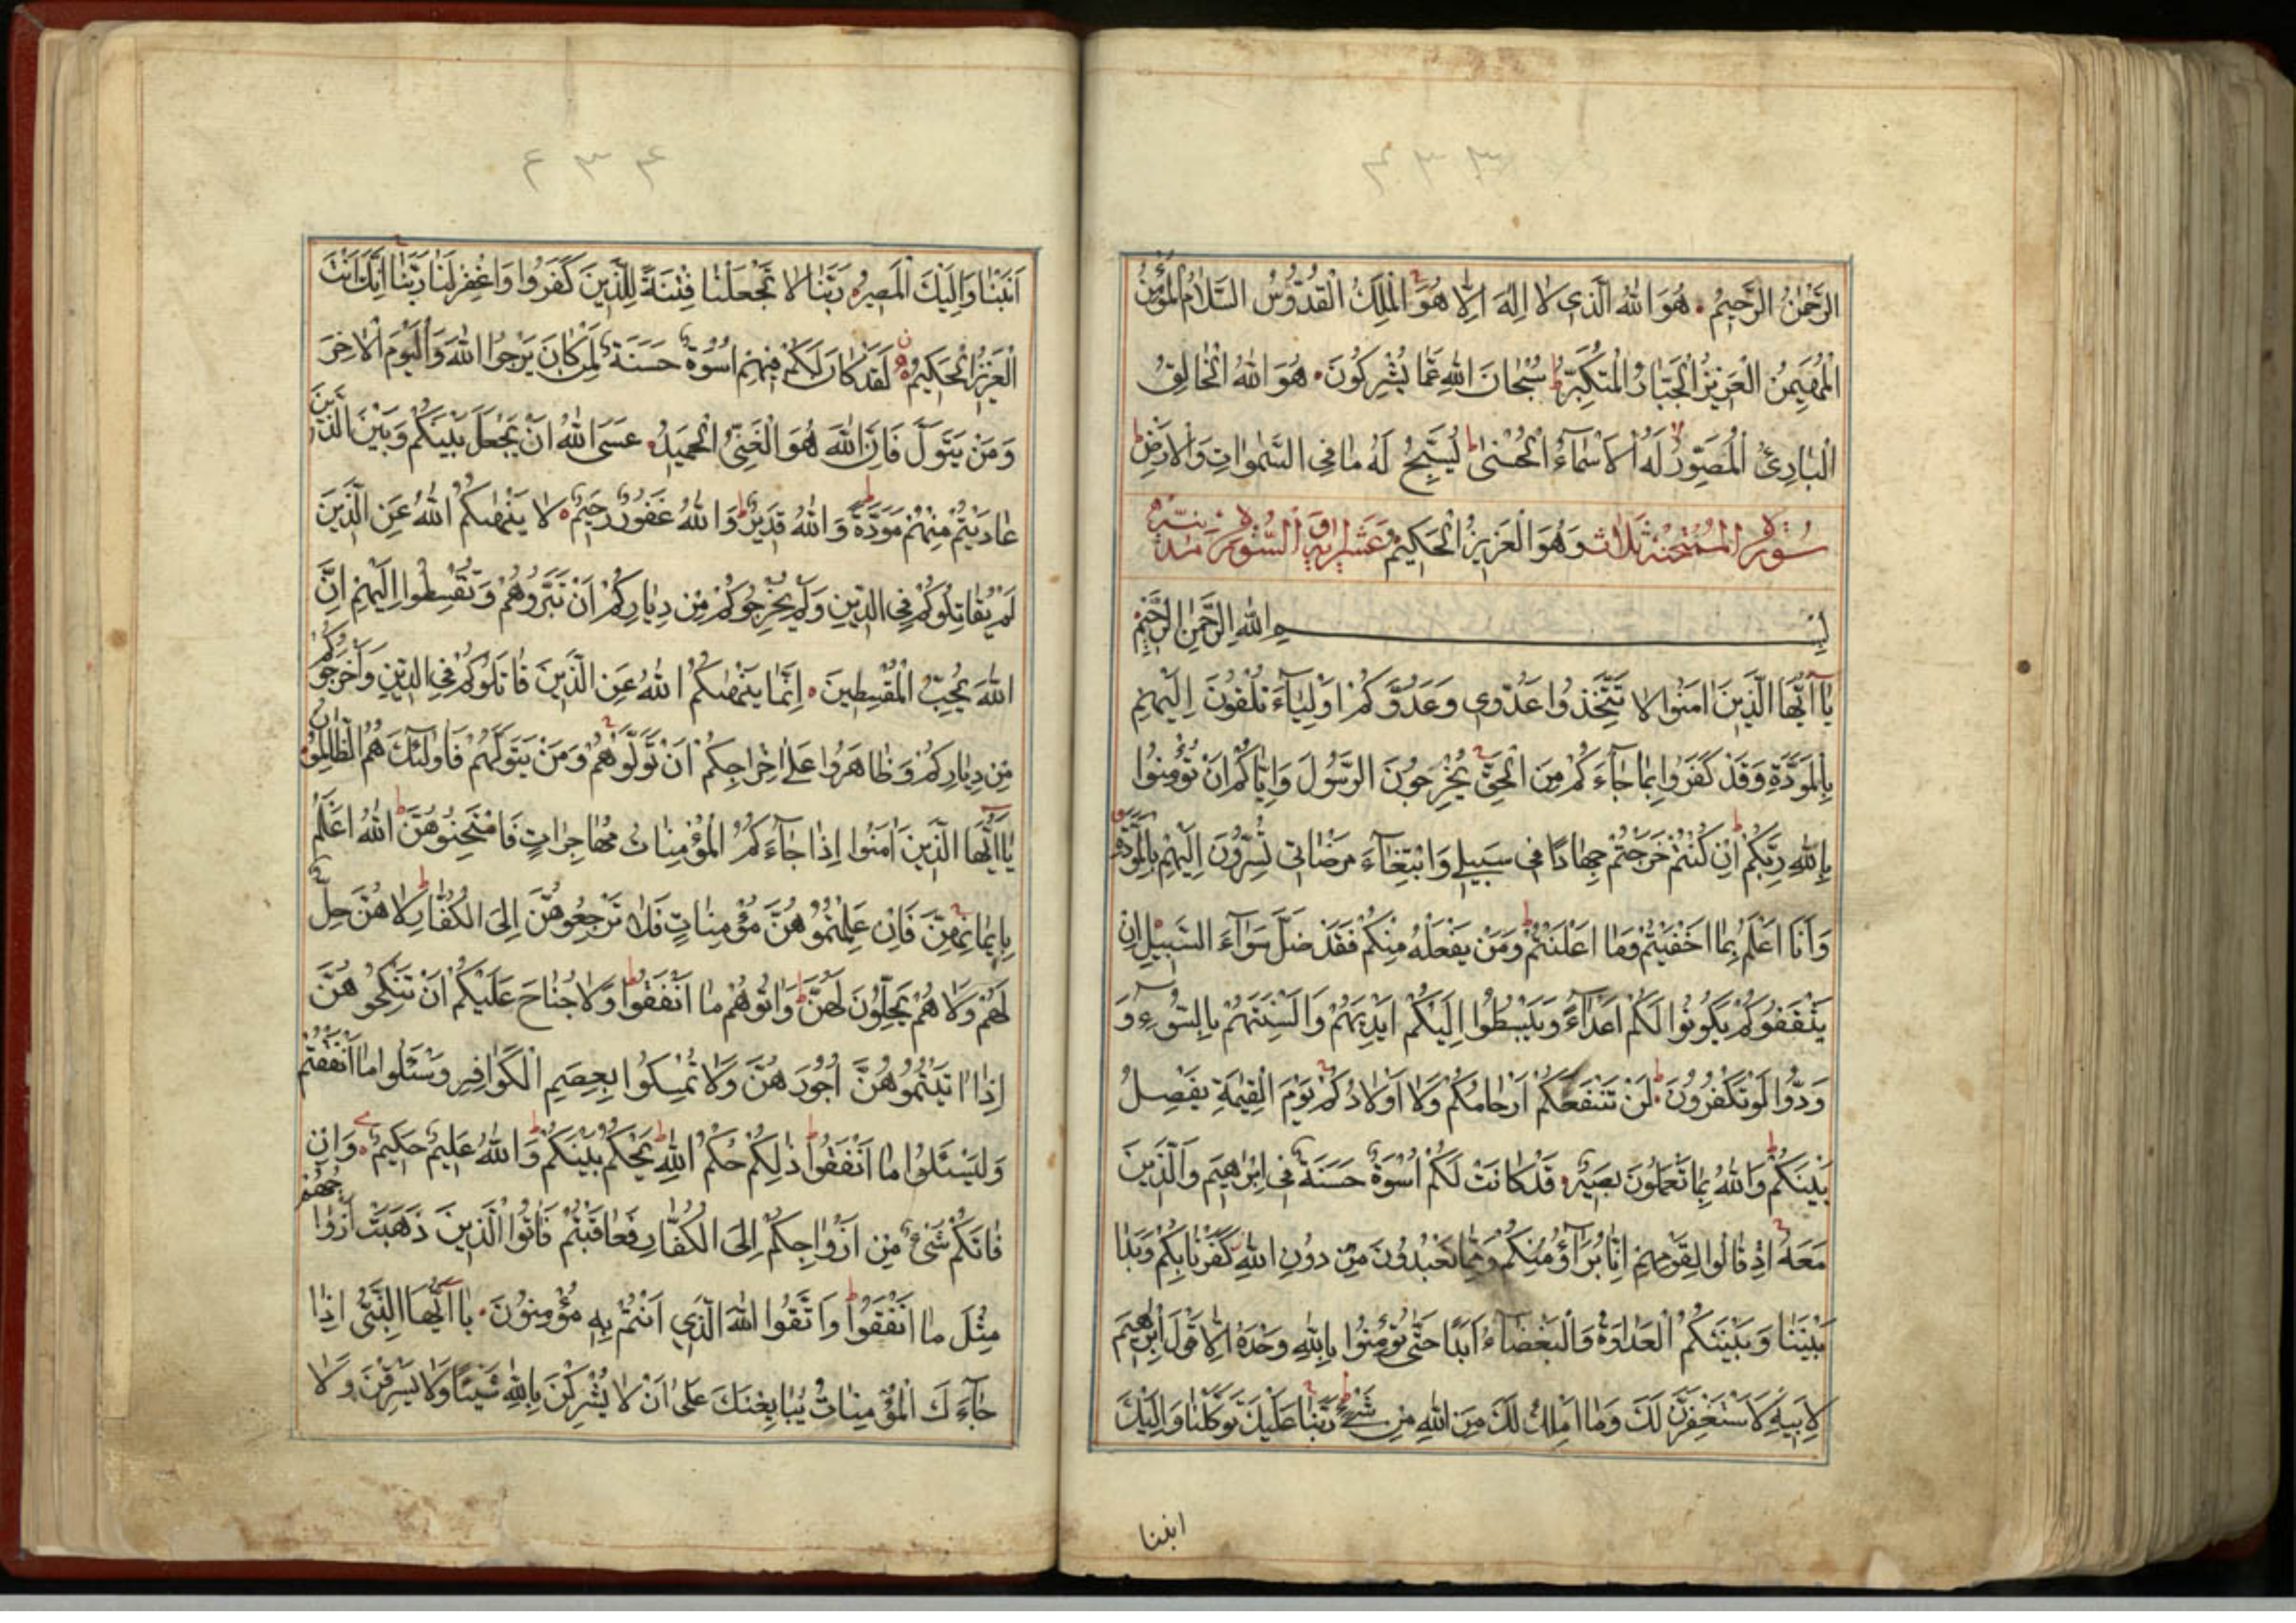 ٤٣٣
الرَّحْمٰنُ الرَّحِيْمُ ۰ هُوَ اللّٰهُ الَّذِي لَا اِلٰهَ اِلَّا هُوَ الْمَلِكُ الْقُدُّوْسُ السَّلَامُ الْمُؤْمِنُ
الْمُهَيْمِنُ الْعَزِيْزُ الْجَبَّارُ الْمُتَكَبِّرُ ط سُبْحَانَ اللّٰهِ عَمَّا يُشْرِكُوْنَ ۰ هُوَ اللّٰهُ الْخَالِقُ
الْبَارِئُ الْمُصَوِّرُ لَهُ الْاَسْمَآءُ الْحُسْنٰى ط يُسَبِّحُ لَهُ مَا فِي السَّمٰوَاتِ وَالْاَرْضِ ط
سُوْرَةُ الْمُمْتَحِنَةِ ثَلَاثَ وَهُوَ الْعَزِيْزُ الْحَكِيْمُ وَعَشَرَ اٰيَةٍ السُّوْرَةُ مَدَنِيَّةٌ
بِسْمِ اللّٰهِ الرَّحْمٰنِ الرَّحِيْمِ
يَا اَيُّهَا الَّذِيْنَ اٰمَنُوا لَا تَتَّخِذُوا عَدُوِّي وَعَدُوَّكُمْ اَوْلِيَآءَ تُلْقُوْنَ اِلَيْهِمْ
بِالْمَوَدَّةِ وَقَدْ كَفَرُوا بِمَا جَآءَكُمْ مِنَ الْحَقِّ يُخْرِجُوْنَ الرَّسُوْلَ وَاِيَّاكُمْ اَنْ تُؤْمِنُوا
بِاللّٰهِ رَبِّكُمْ ط اِنْ كُنْتُمْ خَرَجْتُمْ جِهَادًا فِي سَبِيْلِي وَابْتِغَآءَ مَرْضَاتِي تُسِرُّوْنَ اِلَيْهِمْ بِالْمَوَدَّةِ
وَاَنَا اَعْلَمُ بِمَا اَخْفَيْتُمْ وَمَا اَعْلَنْتُمْ ط وَمَنْ يَفْعَلْهُ مِنْكُمْ فَقَدْ ضَلَّ سَوَآءَ السَّبِيْلِ اِنْ
يَثْقَفُوْكُمْ يَكُوْنُوا لَكُمْ اَعْدَآءً وَيَبْسُطُوا اِلَيْكُمْ اَيْدِيَهُمْ وَاَلْسِنَتَهُمْ بِالسُّوْءِ وَ
وَدُّوا لَوْ تَكْفُرُوْنَ ط لَنْ تَنْفَعَكُمْ اَرْحَامُكُمْ وَلَا اَوْلَادُكُمْ يَوْمَ الْقِيٰمَةِ يَفْصِلُ
بَيْنَكُمْ ط وَاللّٰهُ بِمَا تَعْمَلُوْنَ بَصِيْرٌ ۰ قَدْ كَانَتْ لَكُمْ اُسْوَةٌ حَسَنَةٌ فِي اِبْرَاهِيْمَ وَالَّذِيْنَ
مَعَهُ اِذْ قَالُوا لِقَوْمِهِمْ اِنَّا بُرَآؤُ مِنْكُمْ وَمِمَّا تَعْبُدُوْنَ مِنْ دُوْنِ اللّٰهِ كَفَرْنَا بِكُمْ وَبَدَا
بَيْنَنَا وَبَيْنَكُمُ الْعَدَاوَةُ وَالْبَغْضَآءُ اَبَدًا حَتّٰى تُؤْمِنُوا بِاللّٰهِ وَحْدَهُ اِلَّا قَوْلَ اِبْرٰهِيْمَ
لِاَبِيْهِ لَاَسْتَغْفِرَنَّ لَكَ وَمَا اَمْلِكُ لَكَ مِنَ اللّٰهِ مِنْ شَيْءٍ ط رَبَّنَا عَلَيْكَ تَوَكَّلْنَا وَاِلَيْكَ
انبنا
٤٣٤
اَنَبْنَا وَاِلَيْكَ الْمَصِيْرُ ۰ رَبَّنَا لَا تَجْعَلْنَا فِتْنَةً لِلَّذِيْنَ كَفَرُوا وَاغْفِرْ لَنَا رَبَّنَا اِنَّكَ اَنْتَ
الْعَزِيْزُ الْحَكِيْمُ ۰ لَقَدْ كَانَ لَكُمْ فِيْهِمْ اُسْوَةٌ حَسَنَةٌ لِمَنْ كَانَ يَرْجُوا اللّٰهَ وَالْيَوْمَ الْاٰخِرَ
وَمَنْ يَتَوَلَّ فَاِنَّ اللّٰهَ هُوَ الْغَنِيُّ الْحَمِيْدُ ۰ عَسَى اللّٰهُ اَنْ يَجْعَلَ بَيْنَكُمْ وَبَيْنَ الَّذِيْنَ
عَادَيْتُمْ مِنْهُمْ مَوَدَّةً ط وَاللّٰهُ قَدِيْرٌ ط وَاللّٰهُ غَفُوْرٌ رَحِيْمٌ ۰ لَا يَنْهٰىكُمُ اللّٰهُ عَنِ الَّذِيْنَ
لَمْ يُقَاتِلُوْكُمْ فِي الدِّيْنِ وَلَمْ يُخْرِجُوْكُمْ مِنْ دِيَارِكُمْ اَنْ تَبَرُّوْهُمْ وَتُقْسِطُوا اِلَيْهِمْ اِنَّ
اللّٰهَ يُحِبُّ الْمُقْسِطِيْنَ ۰ اِنَّمَا يَنْهٰىكُمُ اللّٰهُ عَنِ الَّذِيْنَ قَاتَلُوْكُمْ فِي الدِّيْنِ وَاَخْرَجُوْكُمْ
مِنْ دِيَارِكُمْ وَظَاهَرُوا عَلٰى اِخْرَاجِكُمْ اَنْ تَوَلَّوْهُمْ وَمَنْ يَتَوَلَّهُمْ فَاُولٰئِكَ هُمُ الظَّالِمُوْنَ ۰
يَا اَيُّهَا الَّذِيْنَ اٰمَنُوا اِذَا جَآءَكُمُ الْمُؤْمِنَاتُ مُهَاجِرَاتٍ فَامْتَحِنُوْهُنَّ ط اَللّٰهُ اَعْلَمُ
بِاِيْمَانِهِنَّ فَاِنْ عَلِمْتُمُوْهُنَّ مُؤْمِنَاتٍ فَلَا تَرْجِعُوْهُنَّ اِلَى الْكُفَّارِ ط لَا هُنَّ حِلٌّ
لَهُمْ وَلَا هُمْ يَحِلُّوْنَ لَهُنَّ ط وَاٰتُوْهُمْ مَا اَنْفَقُوا ط وَلَا جُنَاحَ عَلَيْكُمْ اَنْ تَنْكِحُوْهُنَّ
اِذَا اٰتَيْتُمُوْهُنَّ اُجُوْرَهُنَّ وَلَا تُمْسِكُوا بِعِصَمِ الْكَوَافِرِ وَسْئَلُوا مَا اَنْفَقْتُمْ
وَلْيَسْئَلُوا مَا اَنْفَقُوا ط ذٰلِكُمْ حُكْمُ اللّٰهِ ط يَحْكُمُ بَيْنَكُمْ ط وَاللّٰهُ عَلِيْمٌ حَكِيْمٌ ۰ وَاِنْ
فَاتَكُمْ شَيْءٌ مِنْ اَزْوَاجِكُمْ اِلَى الْكُفَّارِ فَعَاقَبْتُمْ فَاٰتُوا الَّذِيْنَ ذَهَبَتْ اَزْوَاجُهُمْ
مِثْلَ مَا اَنْفَقُوا ط وَاتَّقُوا اللّٰهَ الَّذِي اَنْتُمْ بِهِ مُؤْمِنُوْنَ ۰ يَا اَيُّهَا النَّبِيُّ اِذَا
جَآءَكَ الْمُؤْمِنَاتُ يُبَايِعْنَكَ عَلٰى اَنْ لَا يُشْرِكْنَ بِاللّٰهِ شَيْئًا وَلَا يَسْرِقْنَ وَلَا